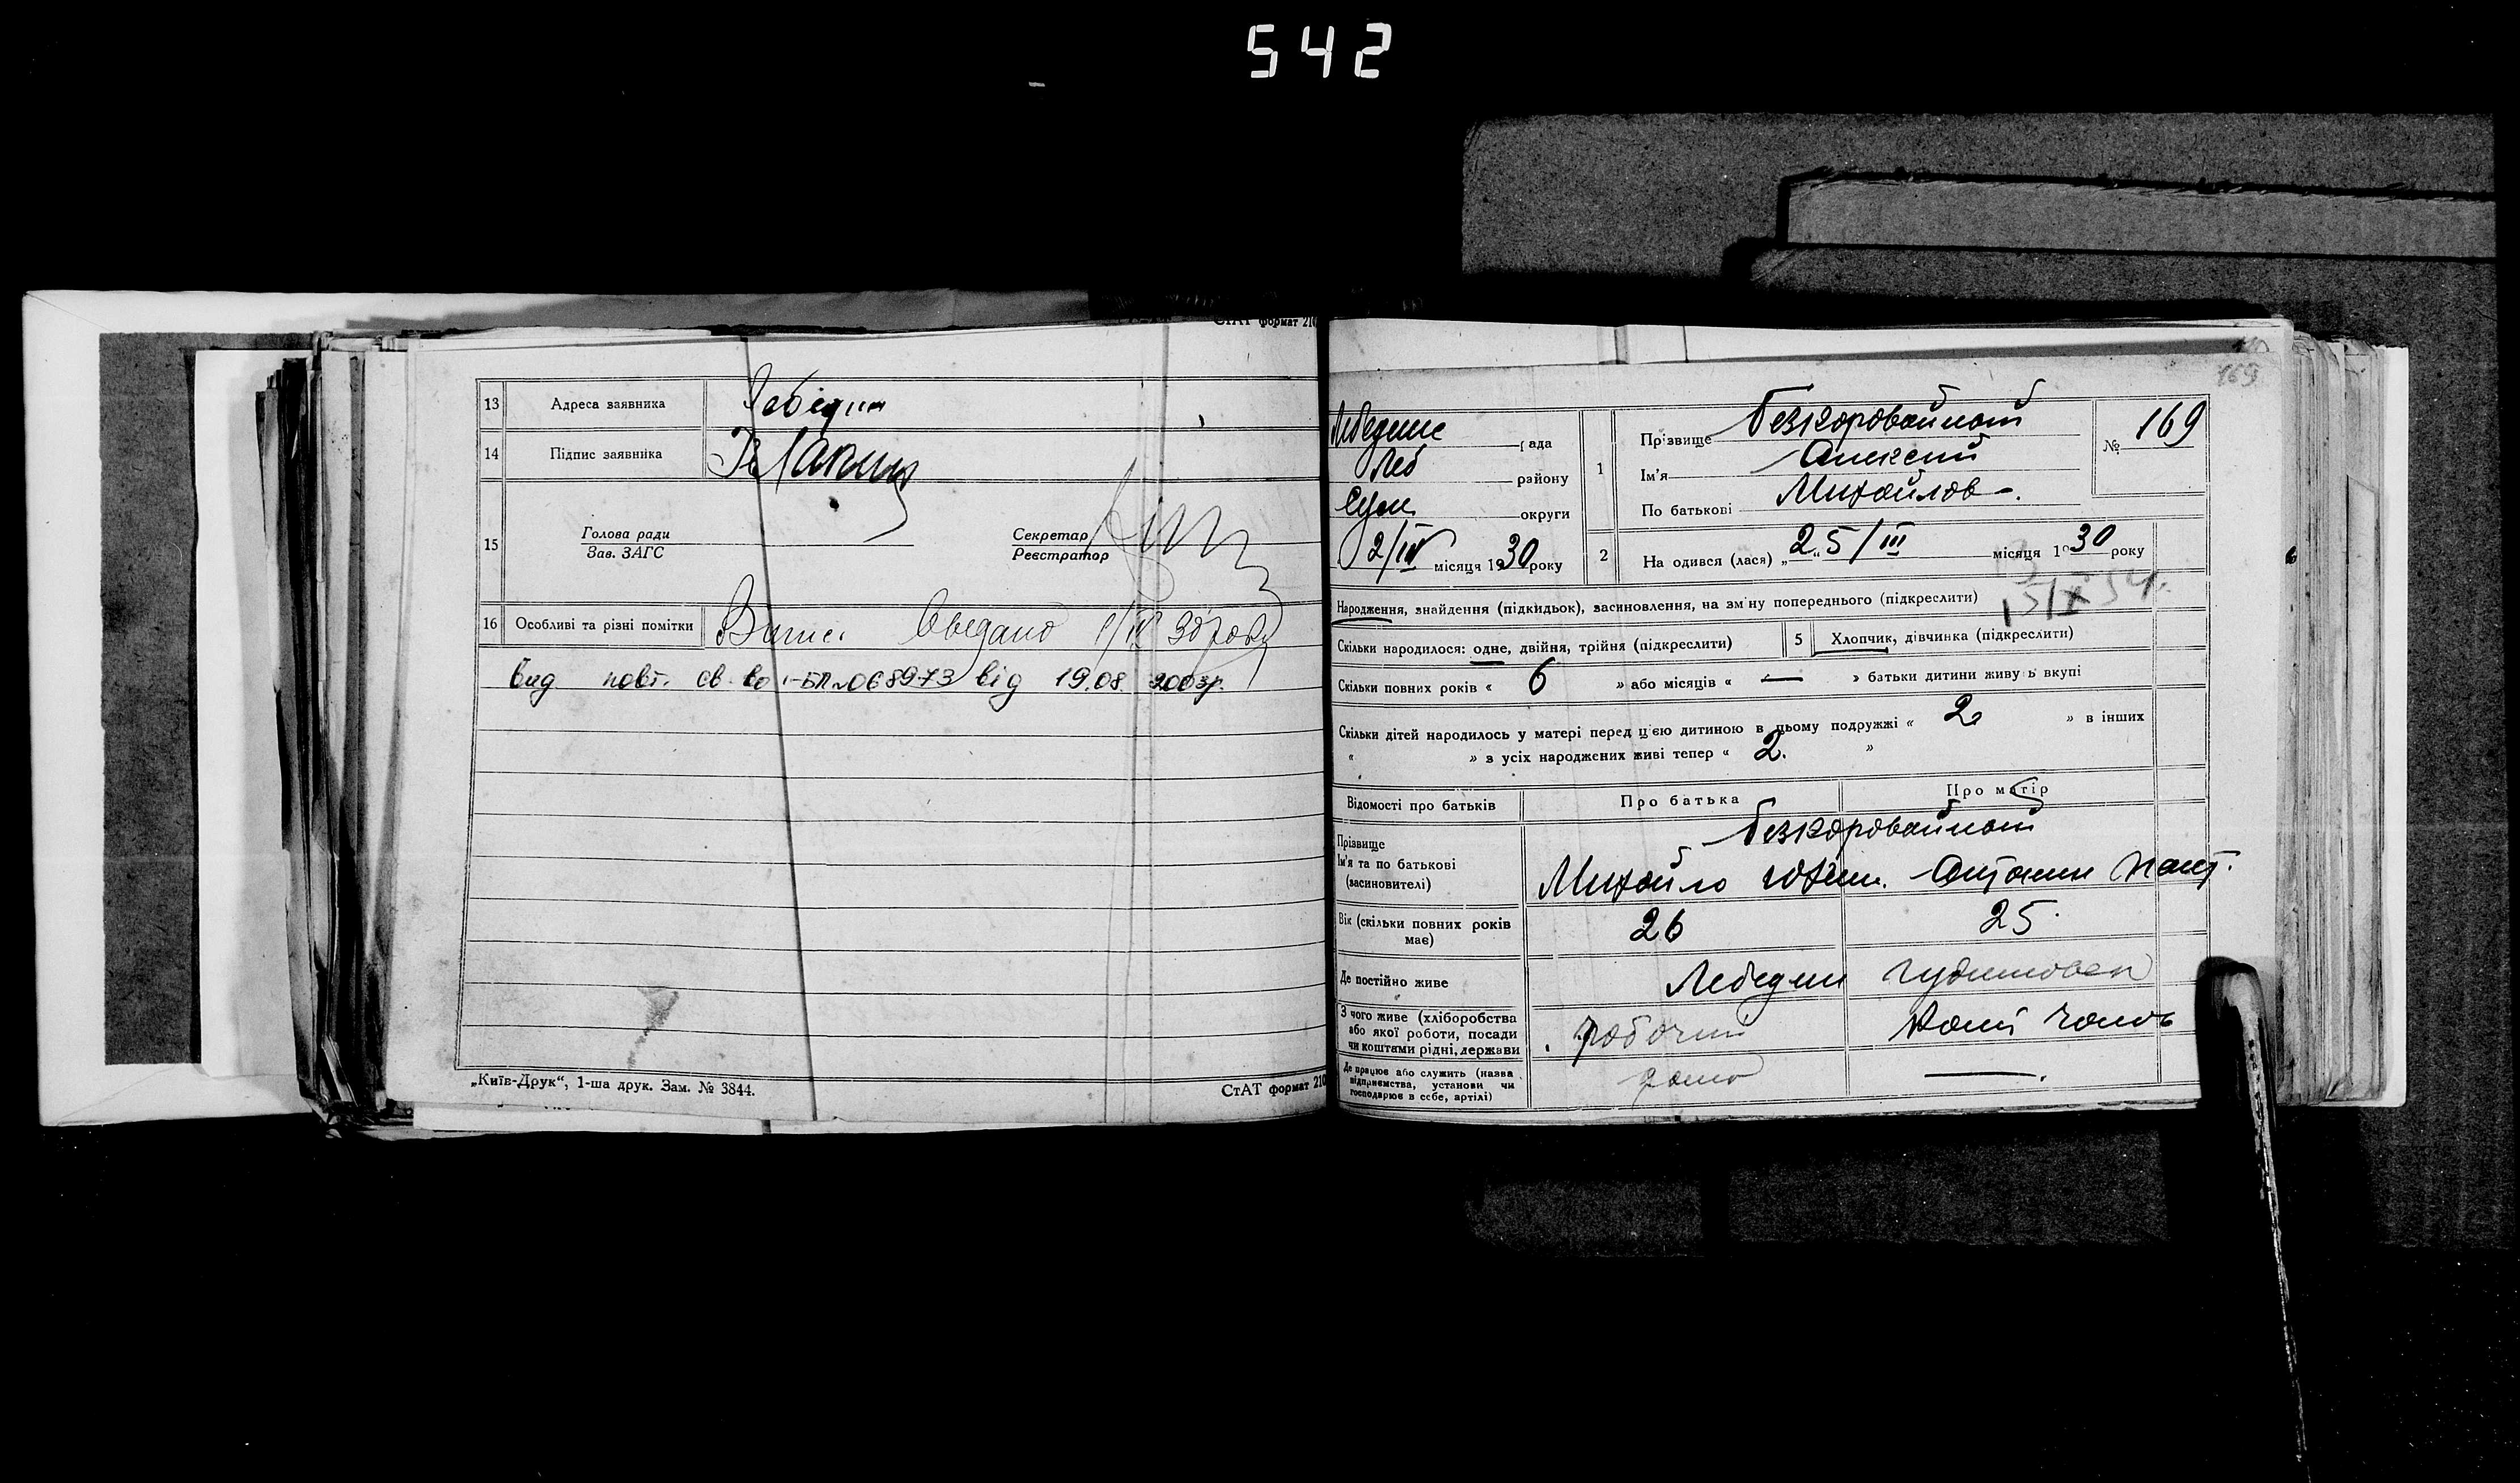 542
СтАТ формат 210
13 Адреса заявника Лебедин
14 Підпис заявника
15 Голова ради
Зав. ЗАГС
Секретар
Реєстратор
16 Особливі та різні помітки Випис
30 року
Вид повт. св-во І-БП №068973 від 19.08. 2003р.
„Київ-Друк“, 1-ша друк. Зам. № 3844.
СтАТ формат 210
169
рада
Леб району
Сум округи
2/IV місяця 1930 року
1 Прізвище Безкоровайный
Ім'я Алексей
По батькові Михайлов-.
№ 169
2 Народився (лася) „25/III місяця 1930 року
Народження, знайдення (підкидьок), засиновлення, на зміну попереднього (підкреслити)
Скільки народилося: одне, двійня, трійня (підкреслити)
5 Хлопчик, дівчинка (підкреслити)
Скільки повних років « 6 » або місяців « — » батьки дитини живуть вкупі
Скільки дітей народилось у матері перед цією дитиною в цьому подружжі « 2 » в інших
« » з усіх народжених живі тепер « 2. »
Відомості про батьків Про батька Про матір
Прізвище
Ім'я та по батькові
(засиновителі)
Безкоровайный
Михайло
Вік (скільки повних років
має)
26 25
Де постійно живе Лебедин
З чого живе (хліборобства
або якої роботи, посади
чи коштами рідні, держави
робочий
Де працює або служить (назва
підприємства, установи чи
господарює в себе, артілі)
—